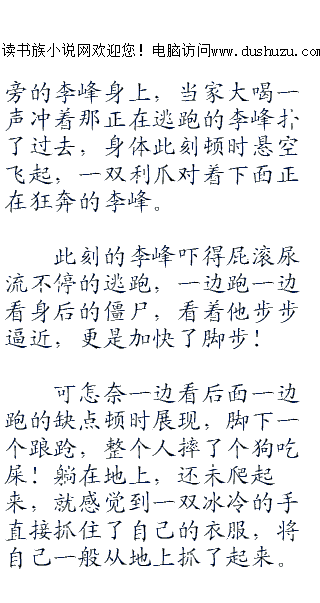 读书族小说网欢迎您！电脑访问www.dushuzu.com
旁的李峰身上，当家大喝一
声冲着那正在逃跑的李峰扑
了过去，身体此刻顿时悬空
飞起，一双利爪对着下面正
在狂奔的李峰。
此刻的李峰吓得屁滚尿
流不停的逃跑，一边跑一边
看身后的僵尸，看着他步步
逼近，更是加快了脚步！
可怎奈一边看后面一边
跑的缺点顿时展现，脚下一
个踉跄，整个人摔了个狗吃
屎！躺在地上，还未爬起
来，就感觉到一双冰冷的手
直接抓住了自己的衣服，将
自己一般从地上抓了起来。